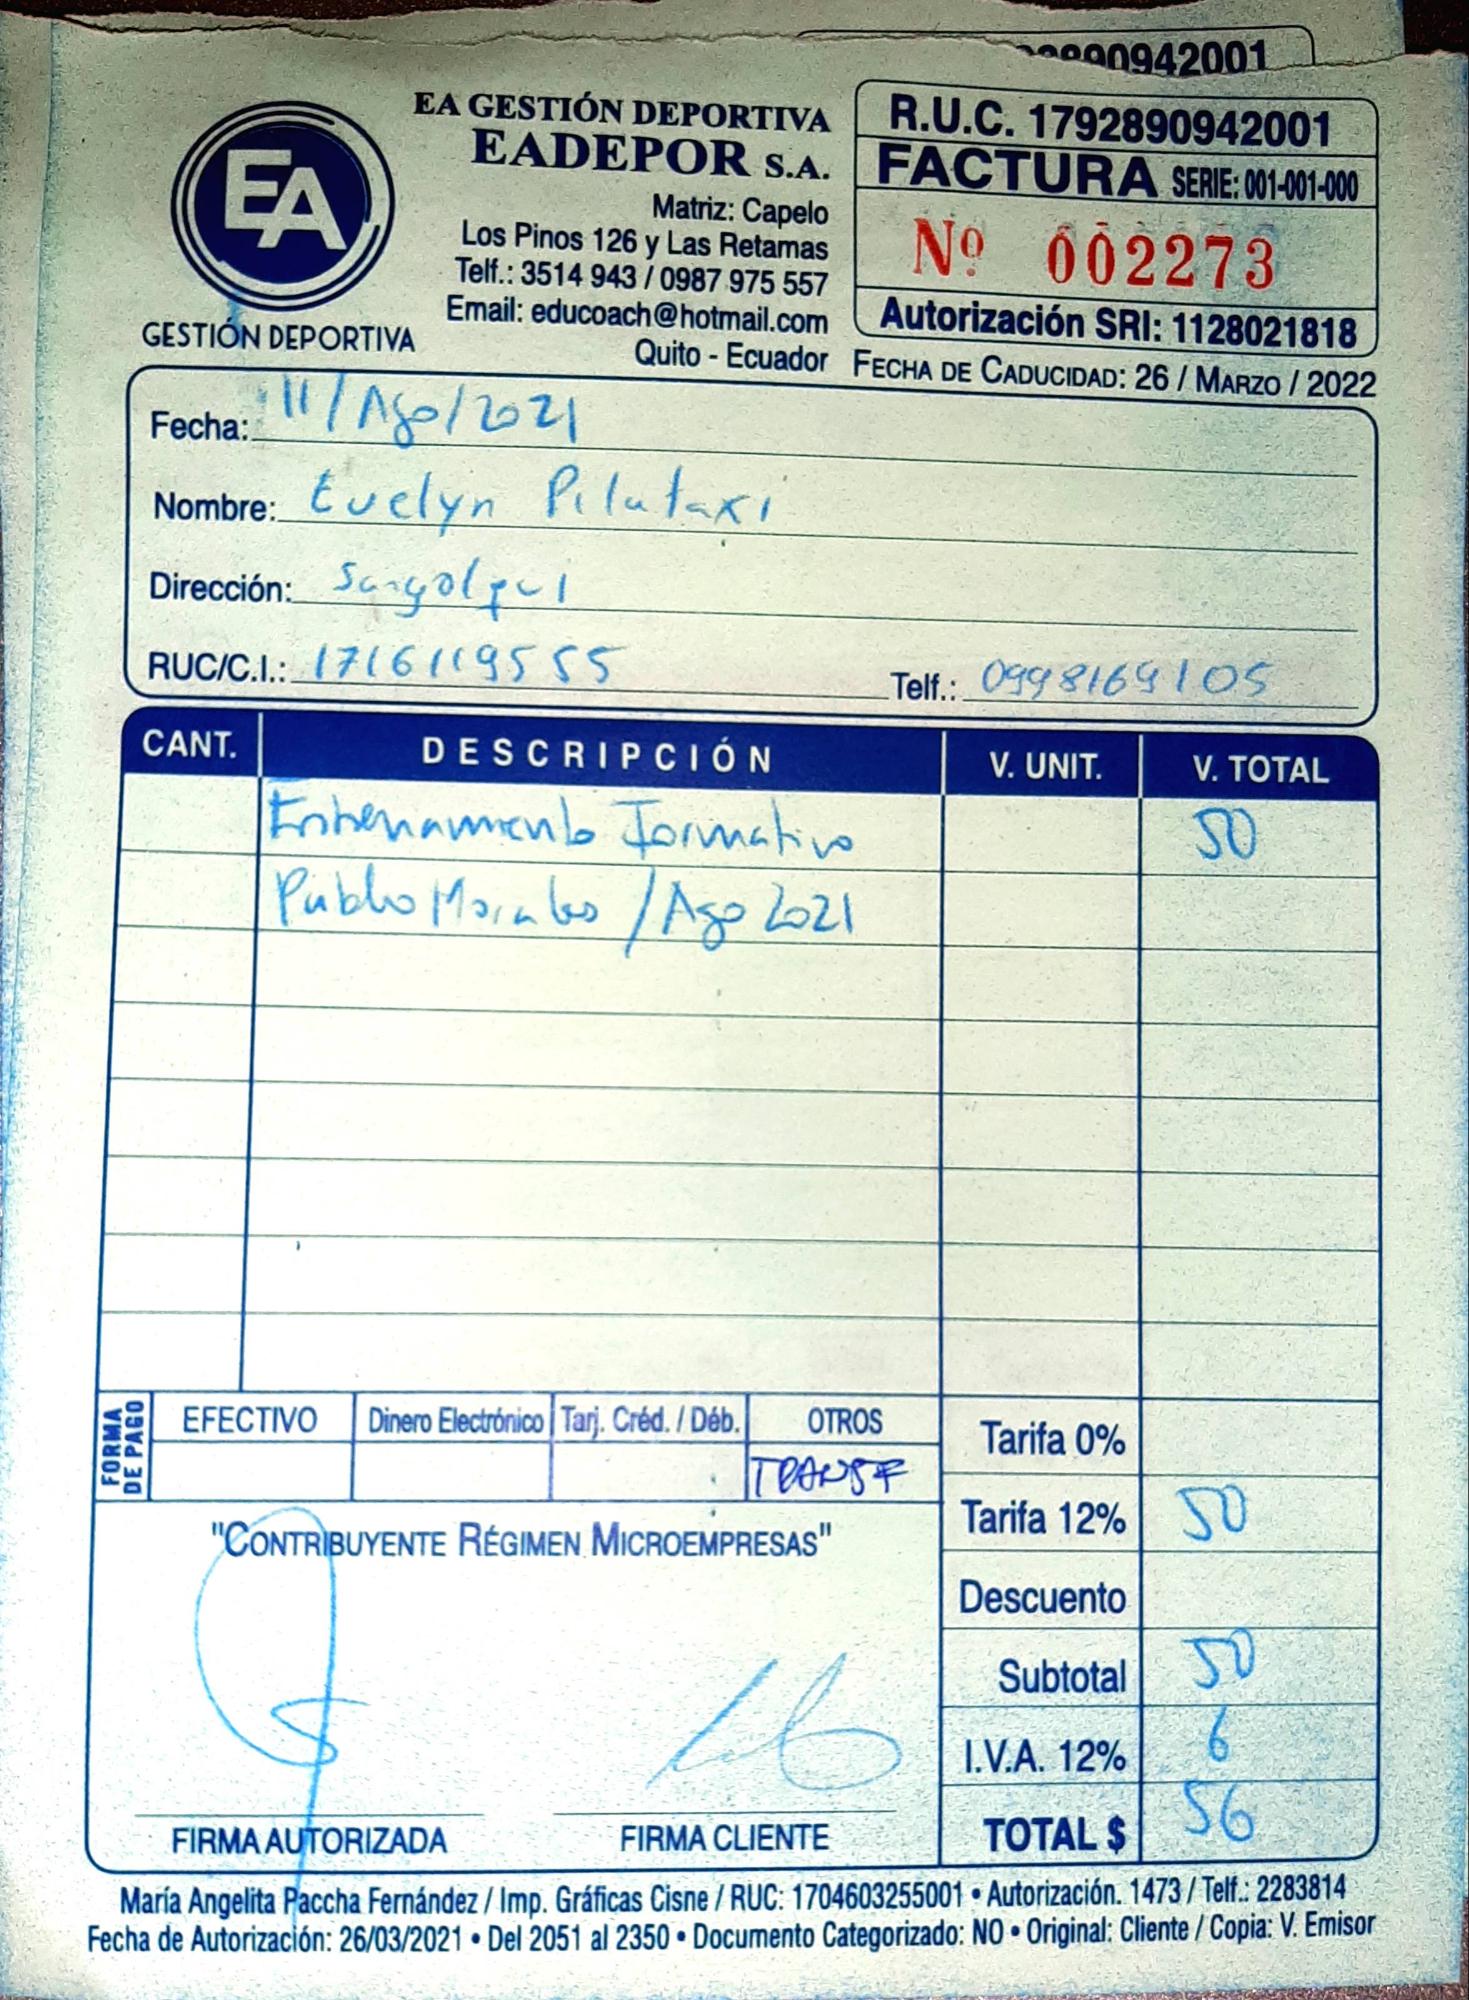 90942001
EA
GESTIÓN DEPORTIVA
EA GESTIÓN DEPORTIVA
EADEPOR S.A.
Matriz: Capelo
Los Pinos 126 y Las Retamas
Telf.: 3514 943 / 0987 975 557
Email: educoach@hotmail.com
Quito - Ecuador
R.U.C. 1792890942001
FACTURA SERIE: 001-001-000
Nº 002273
Autorización SRI: 1128021818
FECHA DE CADUCIDAD: 26 / MARZO / 2022
Fecha: 11/Ago/2021
Nombre: Evelyn Pilataxi
Dirección: Sangolqui
RUC/C.I.: 1716119555 Telf.: 0998169105
CANT. DESCRIPCIÓN V. UNIT. V. TOTAL
Entrenamiento Formativo 50
Pablo Morales / Ago 2021
FORMA DE PAGO
EFECTIVO Dinero Electrónico Tarj. Créd. / Déb. OTROS
TRANSF
Tarifa 0%
Tarifa 12% 50
Descuento
Subtotal 50
I.V.A. 12% 6
TOTAL $ 56
"CONTRIBUYENTE RÉGIMEN MICROEMPRESAS"
FIRMA AUTORIZADA FIRMA CLIENTE
María Angelita Paccha Fernández / Imp. Gráficas Cisne / RUC: 1704603255001 • Autorización. 1473 / Telf.: 2283814
Fecha de Autorización: 26/03/2021 • Del 2051 al 2350 • Documento Categorizado: NO • Original: Cliente / Copia: V. Emisor